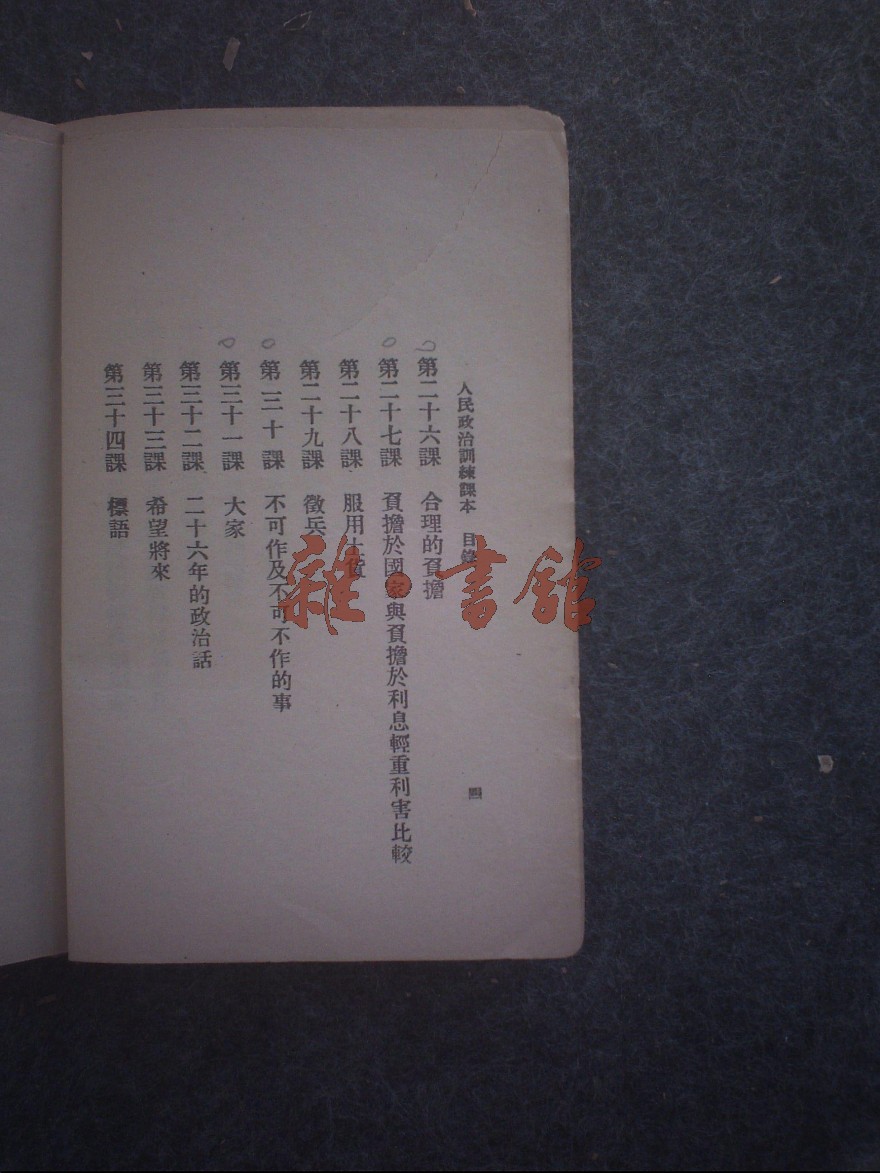 人民政治訓練課本 目錄
四
第二十六課 合理的負擔
第二十七課 負擔於國家與負擔於利息輕重利害比較
第二十八課 服用土貨
第二十九課 徵兵
第三十課 不可作及不可不作的事
第三十一課 大家
第三十二課 二十六年的政治話
第三十三課 希望將來
第三十四課 標語
雜·書館